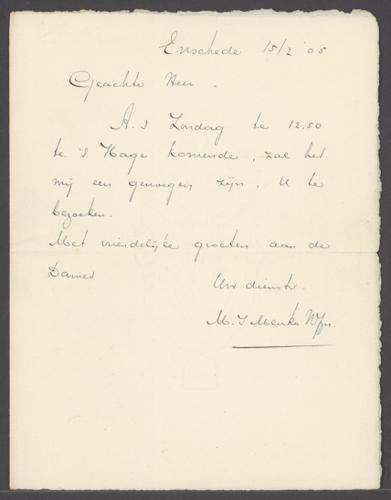 Enschede 15/2 '05
Geachte Heer.
A.S Zondag te 12.50
te 's Hage komende, zal het
mij een genoegen zijn, U te
bezoeken.
Met vriendelijke groeten aan de
Dames
Uw dienstv.
M. J Menko Nfzn.